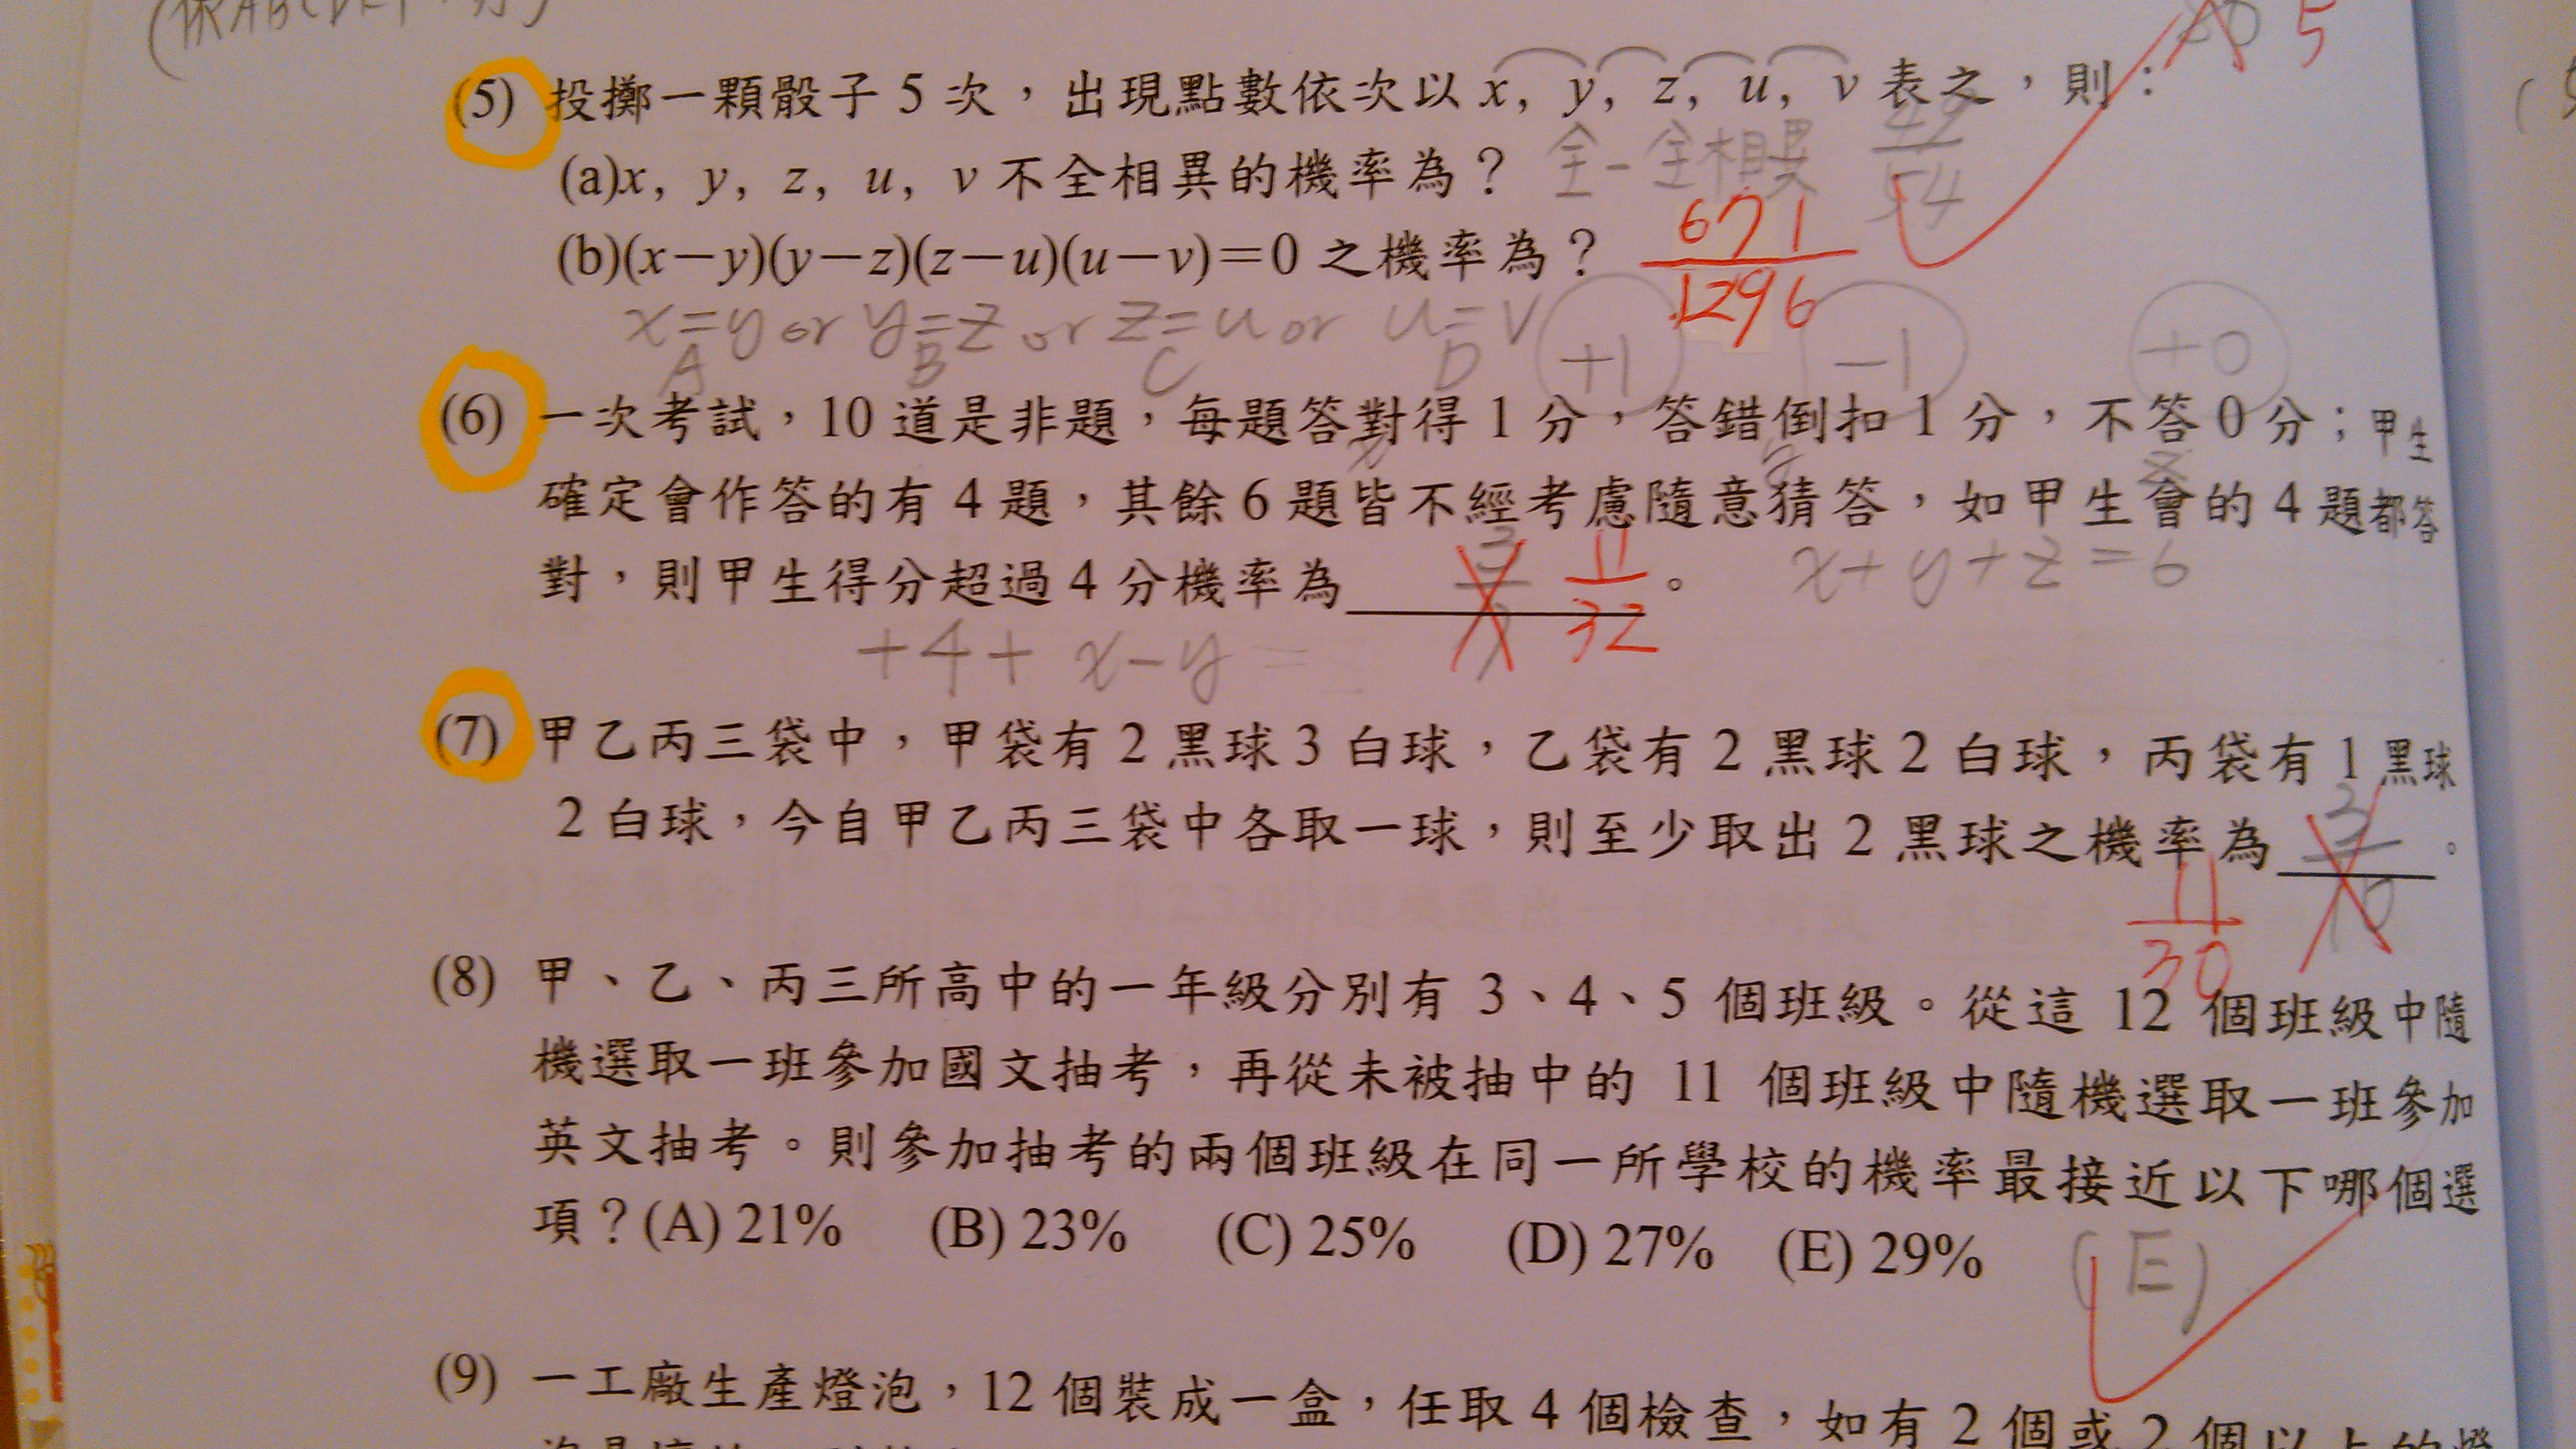 (依ABCDEF
5
(5) 投擲一顆骰子 5 次，出現點數依次以 x, y, z, u, v 表之，則：
(a)x, y, z, u, v 不全相異的機率為？ 全-全相異 49/54
(b)(x－y)(y－z)(z－u)(u－v)＝0 之機率為？ 671/1296
x=y or y=z or z=u or u=v
A B C D
+1 -1 +0
(6) 一次考試，10 道是非題，每題答對得 1 分，答錯倒扣 1 分，不答 0 分；甲生
x y z
確定會作答的有 4 題，其餘 6 題皆不經考慮隨意猜答，如甲生會的 4 題都答
對，則甲生得分超過 4 分機率為 11/32 。 x+y+z=6
+4+ x-y =
(7) 甲乙丙三袋中，甲袋有 2 黑球 3 白球，乙袋有 2 黑球 2 白球，丙袋有 1 黑球
2 白球，今自甲乙丙三袋中各取一球，則至少取出 2 黑球之機率為 3/10 。
11/30
(8) 甲、乙、丙三所高中的一年級分別有 3、4、5 個班級。從這 12 個班級中隨
機選取一班參加國文抽考，再從未被抽中的 11 個班級中隨機選取一班參加
英文抽考。則參加抽考的兩個班級在同一所學校的機率最接近以下哪個選
項？(A) 21% (B) 23% (C) 25% (D) 27% (E) 29% (E)
(9) 一工廠生產燈泡，12 個裝成一盒，任取 4 個檢查，如有 2 個或 2 個以上的燈